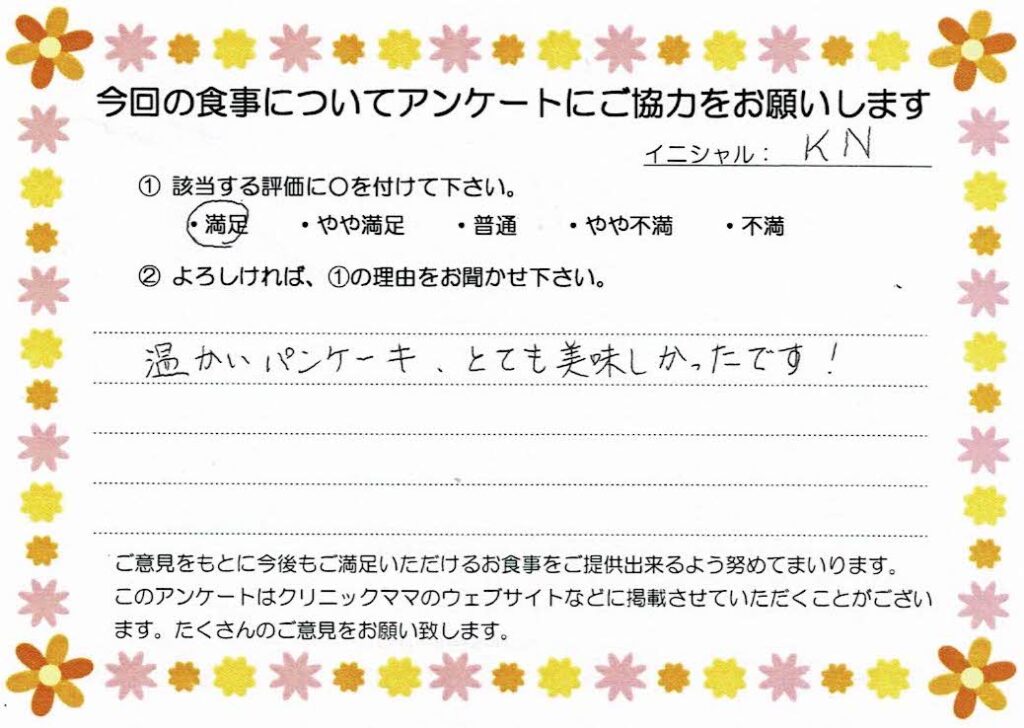 今回の食事についてアンケートにご協力をお願いします
イニシャル： KN
① 該当する評価に〇を付けて下さい。
・満足 ・やや満足 ・普通 ・やや不満 ・不満
② よろしければ、①の理由をお聞かせ下さい。
温かいパンケーキ、とても美味しかったです！
ご意見をもとに今後もご満足いただけるお食事をご提供出来るよう努めてまいります。
このアンケートはクリニックママのウェブサイトなどに掲載させていただくことがござい
ます。たくさんのご意見をお願い致します。